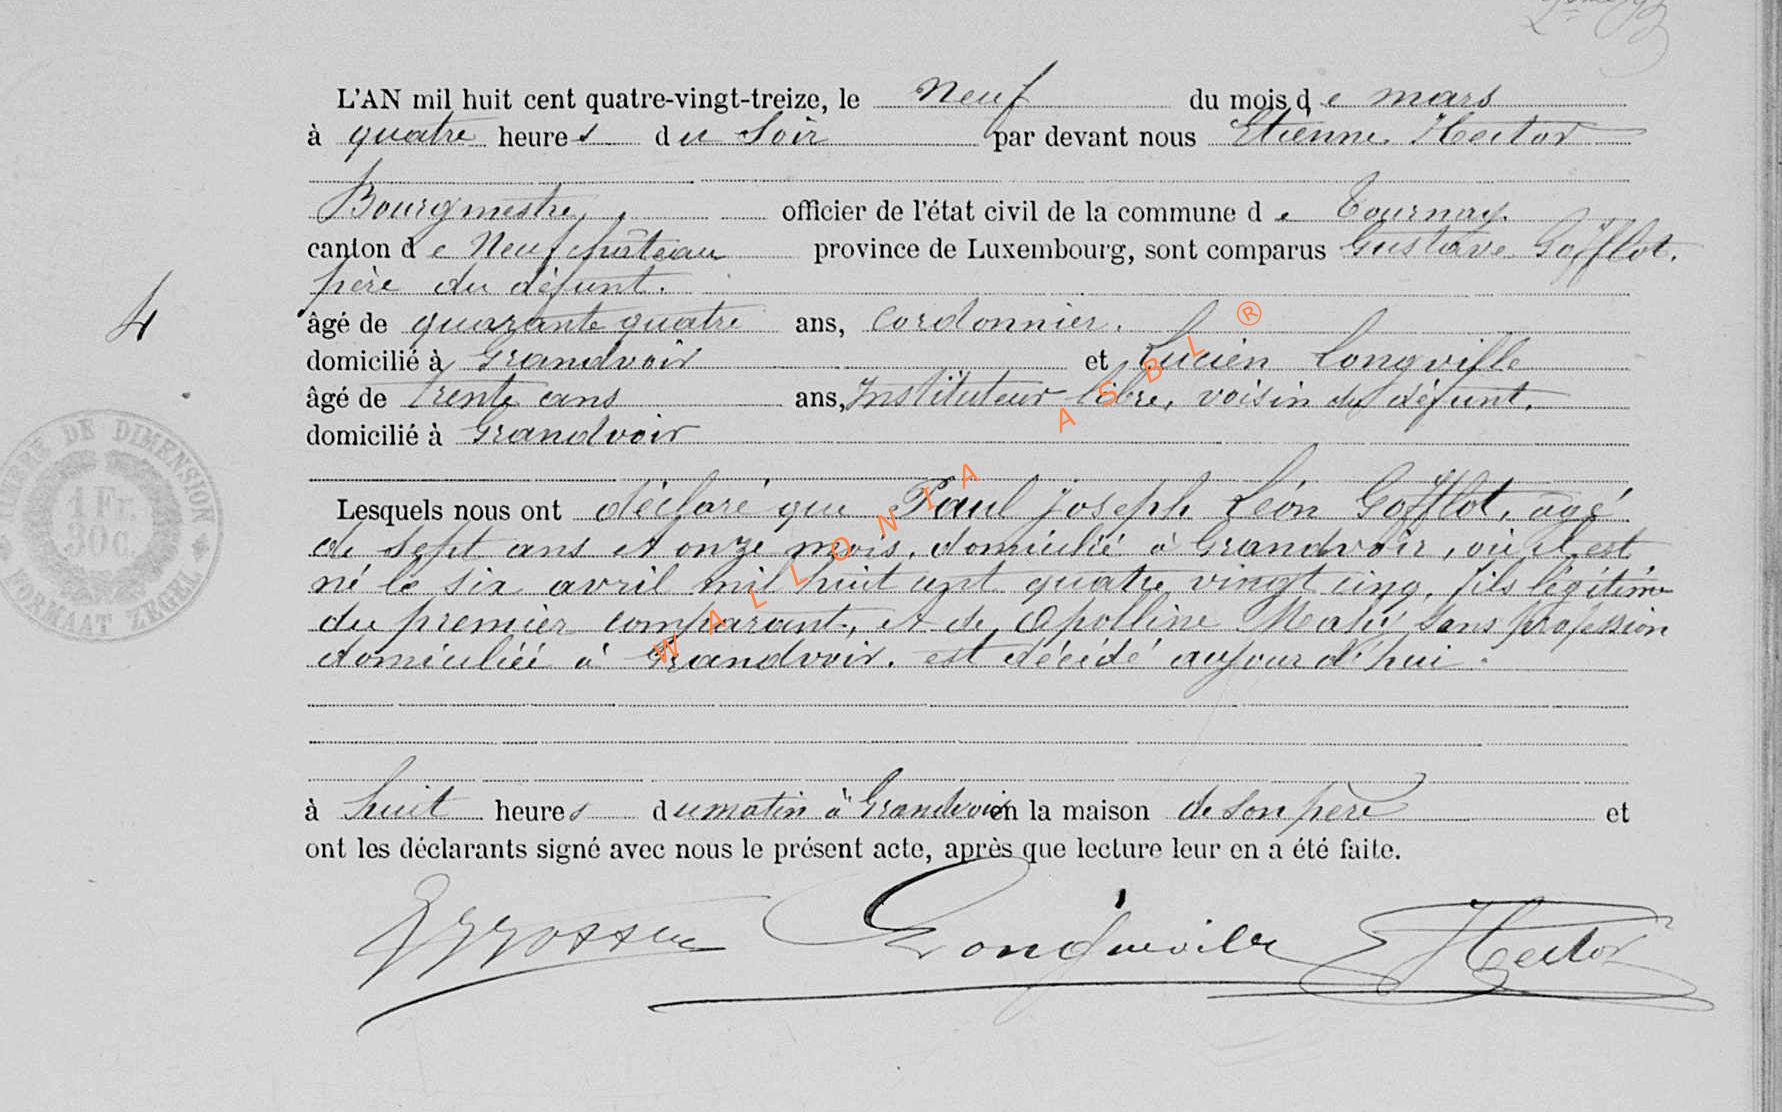 L'AN mil huit cent quatre-vingt-treize, le neuf du mois de mars
à quatre heures du soir par devant nous Etienne Hector
Bourgmestre, officier de l'état civil de la commune de Tournay.
canton de Neufchâteau province de Luxembourg, sont comparus Gustave Gofflot.
père du défunt.
4
âgé de quarante quatre ans, cordonnier.
domicilié à Grandvoir et Lucien Longville
âgé de trente ans ans, Instituteur libre, voisin du défunt.
domicilié à Grandvoir
TIMBRE DE DIMENSION
1 Fr.
30 c.
FORMAAT ZEGEL
Lesquels nous ont déclaré que Paul Joseph Léon Gofflot, âgé
de sept ans et onze mois, domicilié à Grandvoir, où il est
né le six avril mil huit cent quatre vingt cinq, fils légitime
du premier comparant, et de Apolline sans profession
domiciliée à Grandvoir. est décédé aujourd'hui.
à huit heures du matin à Grandvoir en la maison de son père et
ont les déclarants signé avec nous le présent acte, après que lecture leur en a été faite.
E Hector
WALLONIA ASBL ®